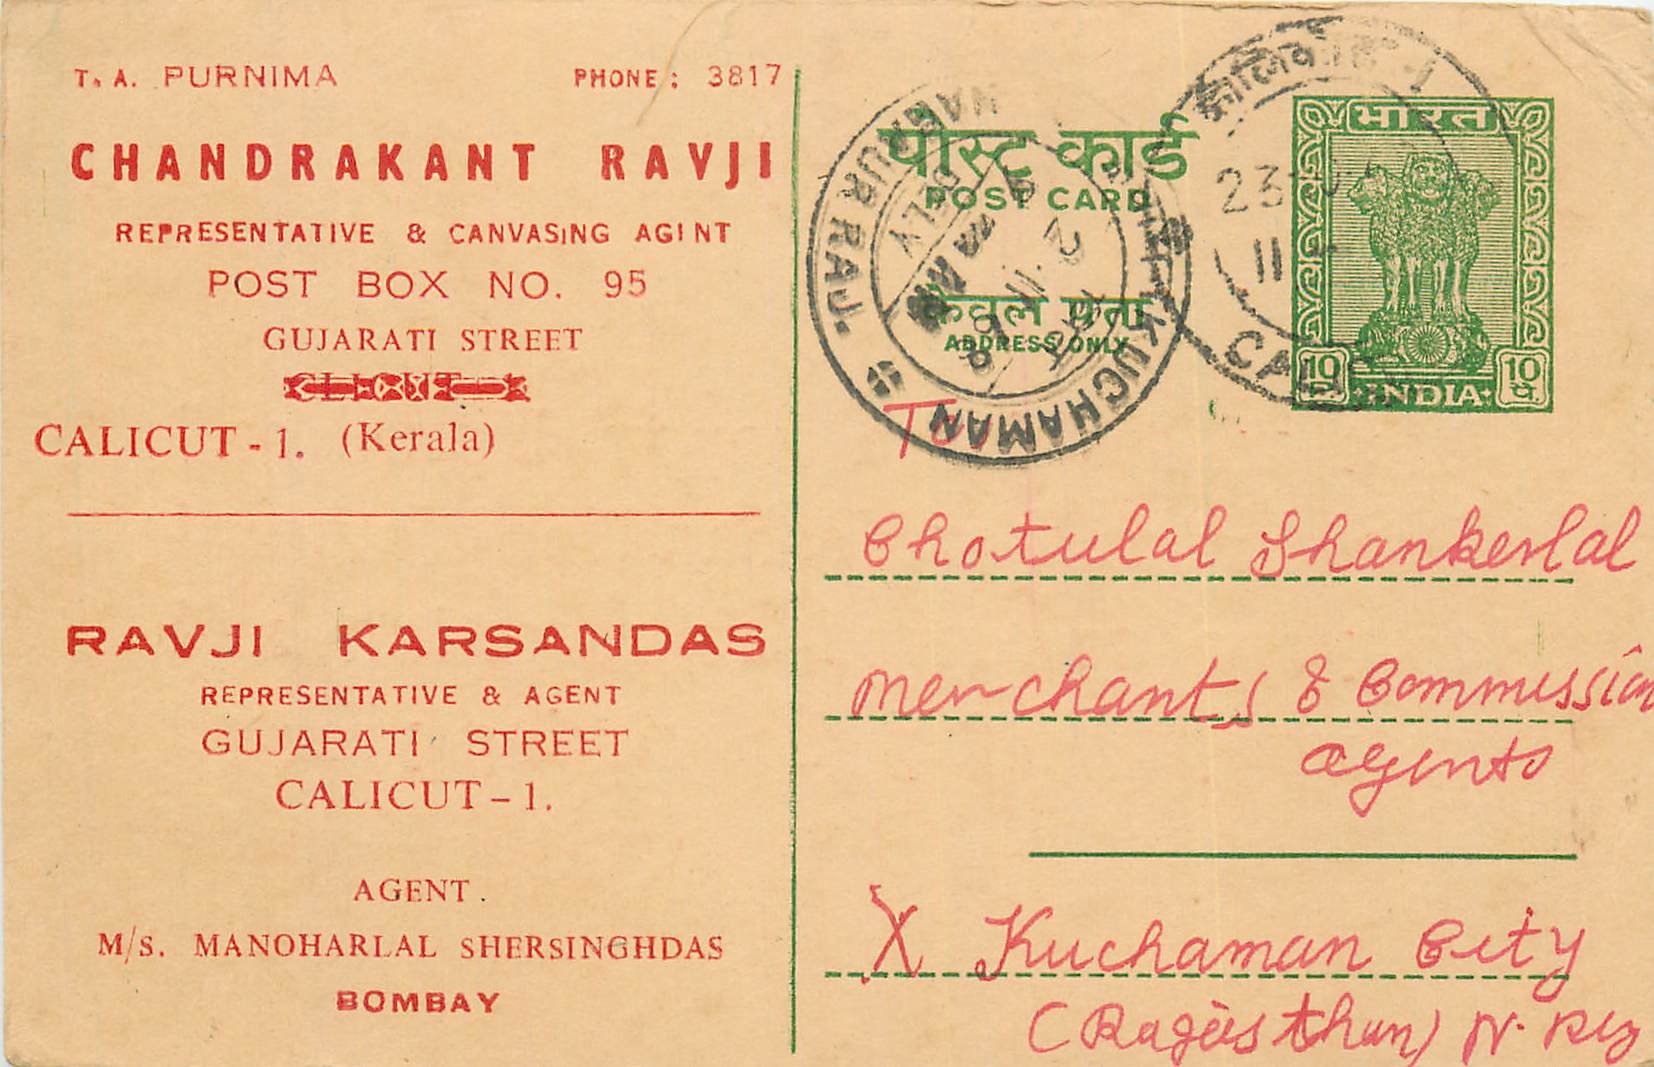 T. A. PURNIMA PHONE : 3817
CHANDRAKANT RAVJI
REPRESENTATIVE & CANVASING AGINT
POST BOX NO. 95
GUJARATI STREET
CALICUT - 1. (Kerala)
RAVJI KARSANDAS
REPRESENTATIVE & AGENT
GUJARATI STREET
CALICUT - 1.
AGENT.
M/S. MANOHARLAL SHERSINGHDAS
BOMBAY
पोस्ट कार्ड
POST CARD
केवल पता
ADDRESS ONLY
भारत
10 प. INDIA 10 प.
कालिकट-1
23
11
KUCHAMAN
NAGAUR RAJ.
DELY
To
Chotulal Shankerlal
Merchants & Commission
agents
X Kuchaman City
(Rajasthan) N. Rly